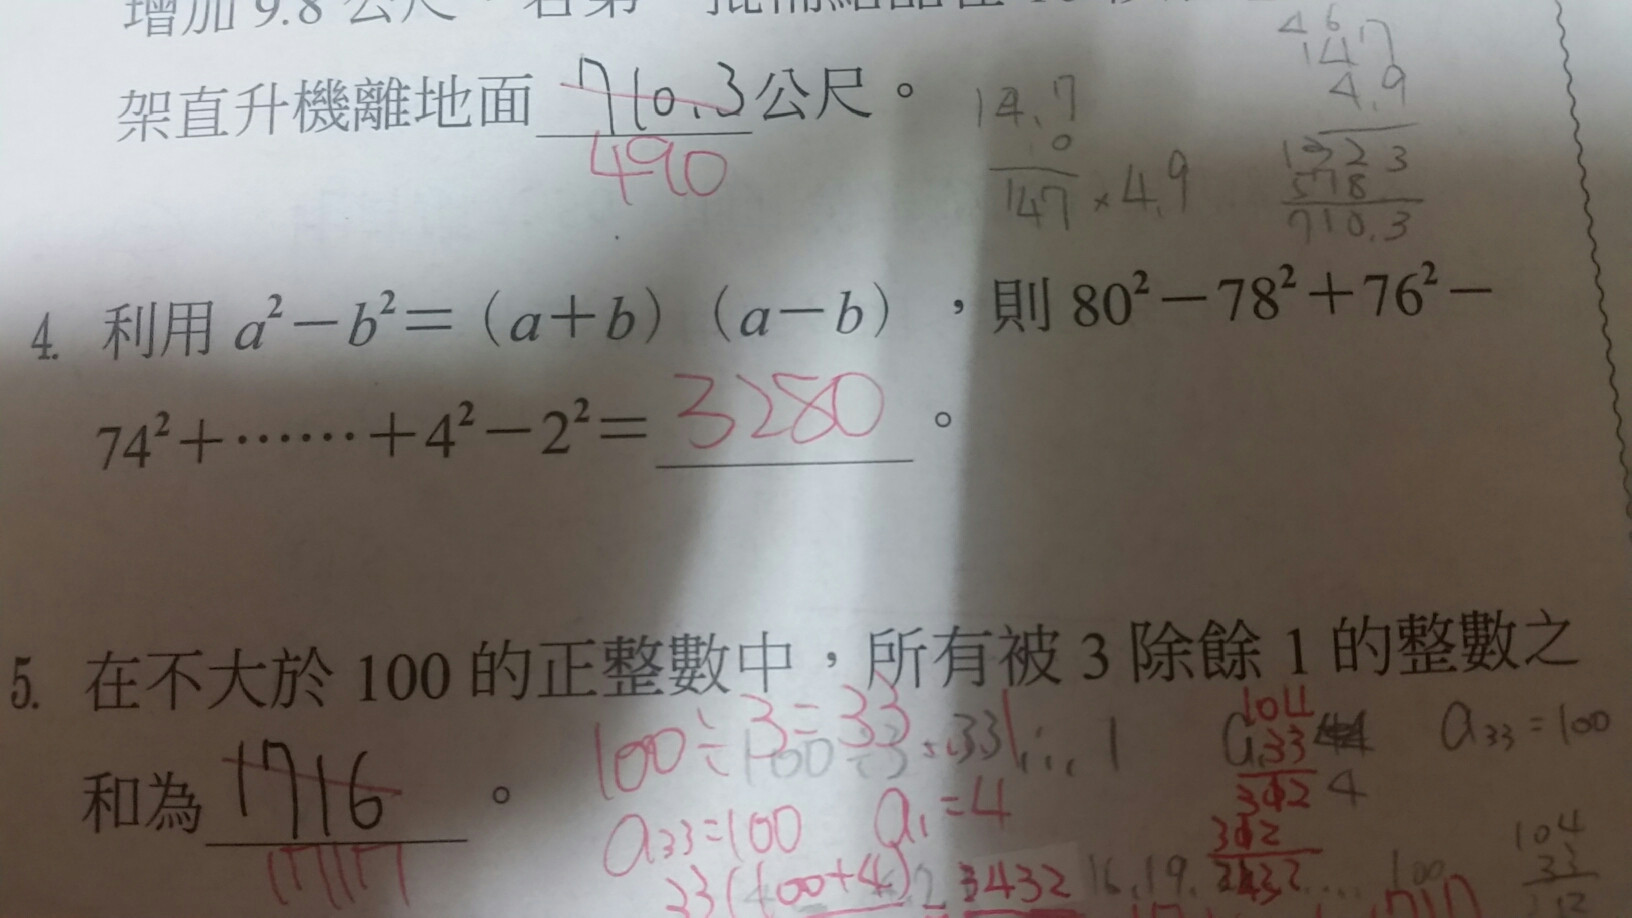 增加 9.8 公尺。若第一批
架直升機離地面 710.3 公尺。
490
14.7
0
147 × 4.9
4 6
147
4.9
1323
578
710.3
4. 利用 a²－b²＝（a＋b）（a－b），則 80²－78²＋76²－
74²＋……＋4²－2²＝ 3280 。
5. 在不大於 100 的正整數中，所有被 3 除餘 1 的整數之
和為 1716 。
1717
100÷3=33
100÷3=33...1
a₃₃=100 a₁=4
33(100+4)
3432
104
33
312
312
3432
4
a₃₃=100
16.19.
100
104
33